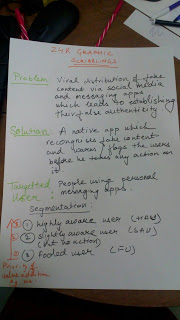 24K GRAPHIC
SCRIBBLINGS
Problem: Viral distribution of fake
content via social media
and messaging apps
which leads to establishing
their false authenticity
Solution: A native app which
recognises fake content
and warns / flags the users
before he takes any action on
it
Targeted People using personal
User: messaging apps.
Segmentation:
(3) ① highly aware user (HAU)
② slightly aware user (SAU)
(but no action)
③ fooled user (FU)
Priority of
value addition